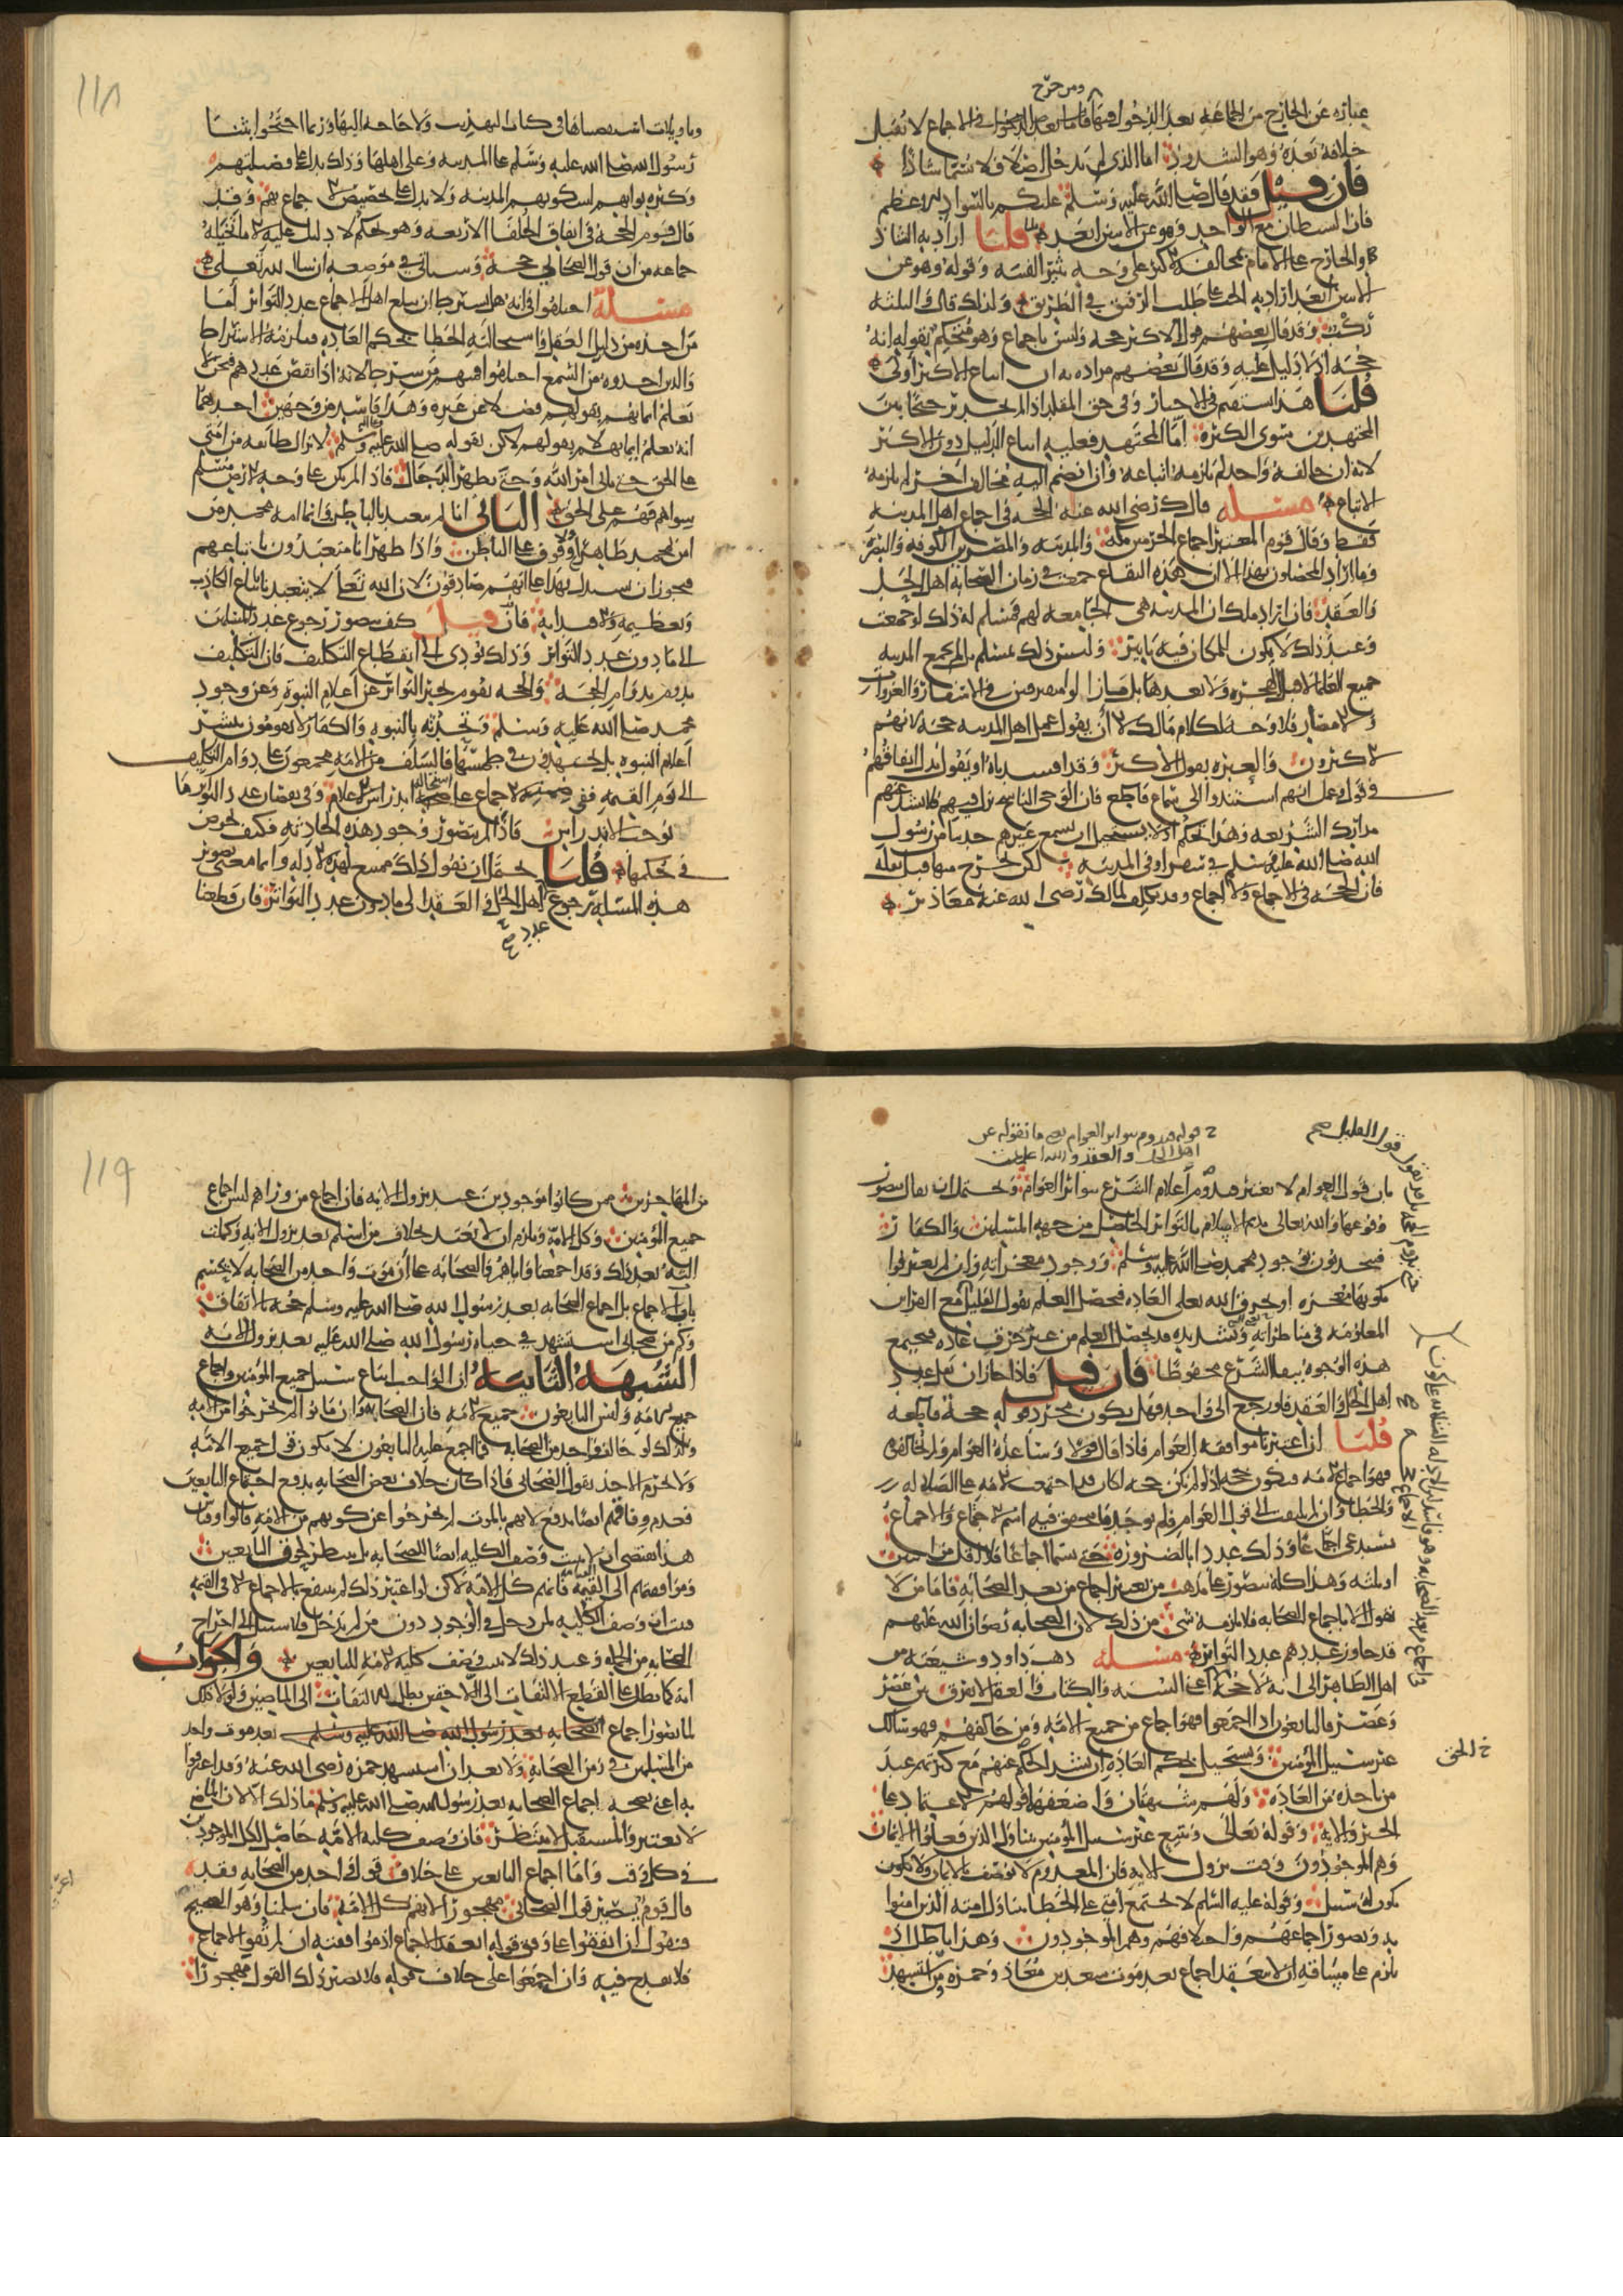 ومن خرج
عبارة عن الخارج من الجماعة بعد الدخول فيها فاما بعد الدخول في الاجماع لا تقبل
خلافه بعده وهو الشذوذ اما الذي لم يدخل اصلا فلا يسمى شاذا
فان قيل فقد قال صلى الله عليه وسلم عليكم بالسواد الاعظم
فان الشيطان مع الواحد وهو عن الاثنين ابعد قلنا اراد به الشاذ
والخارج على الامام بمخالفة الاكثر على وجه يثير الفتنة وقوله وهو عن
الاثنين ابعد اراد به الحث على طلب الرفيق في الطريق ولذلك قال والثلثة
ركب وقد قال بعضهم قول الاكثر حجة وليس باجماع وهو متحكم بقوله انه
حجة اذ لا دليل عليه وقد قال بعضهم مراده به ان اتباع الاكثر اولى
قلنا هذا يستقيم في الاخبار وفي حق المقلد اذا لم يجد ترجيحا بين
المجتهدين سوى الكثرة اما المجتهد فعليه اتباع الدليل دون الاكثر
لانه ان خالفه واحد لم يلزمه اتباعه وان انضم اليه مخالف اخر لم يلزمه
الاتباع مسئله قال مالك رضي الله عنه الحجة في اجماع اهل المدينة
فقط وقال قوم المعتبر اجماع الحرمين مكة والمدينة والمصرين الكوفة والبصرة
وما اراد المحصلون بهذا الا ان هذه البقاع جمعت في زمان الصحابة اهل الحل
والعقد فان اراد مالك ان المدينة هي الجامعة لهم فمسلم له ذلك لو جمعت
وعند ذلك لا يكون للمكان فيه تاثير وليس ذلك بمسلم بل لم تجمع المدينة
جميع العلماء لا قبل الهجرة ولا بعدها بل ما زالوا متفرقين في الاسفار والغزوات
والامصار فلا وجه لكلام مالك الا ان يقول عمل اهل المدينة حجة لانهم
الاكثرون والعبرة بقول الاكثر وقد افسدناه او يقول يدل اتفاقهم
في قول او عمل انهم استندوا الى سماع قاطع فان الوحي الناسخ نزل فيهم فلا تشذ عنهم
مدارك الشريعة وهذا تحكم اذ لا يستحيل ان يسمع غيرهم حديثا من رسول
الله صلى الله عليه وسلم في سفر او في المدينة لكن يخرج منها قبل نقله
فان الحجة في الاجماع ولا اجماع وقد تكلف لمالك رضي الله عنه معاذير
١١٨
وتاويلات استقصيناها في كتاب تهذيب ولا حاجة اليها وربما احتجوا بثناء
رسول الله صلى الله عليه وسلم على المدينة وعلى اهلها وذلك يدل على فضيلتهم
وكثرة ثوابهم لسكونهم المدينة ولا يدل على تخصيص الاجماع بهم وقد
قال قوم الحجة في اتفاق الخلفاء الاربعة وهو تحكم لا دليل عليه الا ما تخيله
جماعة من ان قول الصحابي حجة وسياتي في موضعه ان شاء الله تعالى
مسئلة اختلفوا في انه هل يشترط ان يبلغ اهل الاجماع عدد التواتر اما
من اخذه من دليل العقل واستحالة الخطا بحكم العادة فيلزمه الاشتراط
والذين اخذوه من السمع اختلفوا فمنهم من شرط لانه اذا نقص عددهم فنحن
نعلم ايمانهم بقولهم فضلا عن غيره وهذا فاسد من وجهين احدهما
انه نعلم ايمانهم لا بقولهم لكن بقوله صلى الله عليه وسلم لا تزال طائفة من امتي
على الحق حتى ياتي امر الله وحتى يظهر الدجال فاذا لم يكن على وجه الارض مسلم
سواهم فهم على الحق الثاني انا لم نتعبد بالباطن وانما امة محمد من
امن بمحمد ظاهرا ولا وقوف على الباطن واذا ظهر انا متعبدون باتباعهم
فيجوز ان يستدل بهذا على انهم صادقون لان الله تعالى لا يتعبدنا باتباع الكاذب
وتعظيمه والاقتداء به فان قيل كيف يتصور رجوع عدد المسلمين
الى ما دون عدد التواتر وذلك يؤدي الى انقطاع التكليف فان التكليف
يدوم بدوام الحجة والحجة تقوم بخبر التواتر عن اعلام النبوة وعن وجود
محمد صلى الله عليه وسلم وتحديه بالنبوة والكفار لا يقومون بنشر
اعلام النبوة بل يجتهدون في طمسها والسلف من الامة مجمعون على دوام التكليف
الى يوم القيمة ففي ضمنه الاجماع على استحالة اندراس الاعلام وفي نقصان عدد التواتر ما
يوجب الاندراس فاذا لم يتصور وجود هذه الحادثة فكيف نخوض
في حكمها قلنا يحتمل ان نقول ذلك ممتنع لهذه الادلة وانما معنى تصور
هذه المسئلة رجوع اهل الحل والعقد الى ما دون عدد التواتر فان قطعنا
عدد
قوله هدوم تواتر العوام بعد ما نقوله عن
اهل الحل والعقد والله اعلم
بان قول العوام لا يعتبر فتدوم اعلام الشرع بتواتر العوام ويحتمل ان يقال يتصور
وقوعها والله تعالى يديم الاعلام بالتواتر الحاصل من جهة المسلمين والكفار
فيتحدثون بوجود محمد صلى الله عليه وسلم ووجود معجزاته وان لم يعترفوا
بكونها معجزة او يخرق الله تعالى العادة فيحصل العلم بقول القليل مع القرائن
المعلومة في مناظراته وتشديده قد يحصل العلم من غير خرق عادة فبجميع
هذه الوجوه يبقى الشرع محفوظا فان قيل فاذا جاز ان يقل عدد
اهل الحل والعقد فلو رجع الى واحد فهل يكون مجرد قوله حجة قاطعة
قلنا ان اعتبرنا موافقة العوام فاذا قال قولا وساعده العوام ولم يخالفوه
فهو اجماع الامة فيكون حجة اذ لو لم يكن حجة لكان قد اجتمعت الامة على الضلالة
والخطا وان لم يلتفت الى قول العوام فلم يوجد ما يتحقق فيه اسم الاجماع والاجماع
يستدعي اجماعا وذلك عددا بالضرورة حتى يسمى اجماعا فلا اقل من اثنين
او ثلثة وهذا كله يتصور على مذهب من يعتبر اجماع من بعد الصحابة فاما من لا
يقول الا باجماع الصحابة فلا يلزمه شيء من ذلك لان الصحابة رضوان الله عليهم
قد جاوز عددهم عدد التواتر مسئله ذهب داود وشيعته من
اهل الظاهر الى انه لا حجة في اجماع السنة والكتاب والعقل لا يفرق بين عصر
وعصر فالتابعون اذا اجمعوا فهو اجماع من جميع الامة ومن خالفهم فهو سالك
غير سبيل المؤمنين ويستحيل بحكم العادة ان يشذ الحكم عنهم مع كثرتهم عند
خ الحق
من ياخذه من العادة ولهم شبهتان واضعفها قولهم الاعتماد على
الخبر والاية وقوله تعالى ويتبع غير سبيل المؤمنين يتناول الذين فعلوا الايمان
وهم الموجودون وقت نزول الاية فان المعدوم لا يوصف بالايمان ولا يكون
يكون له سبيل وقوله عليه السلم لا تجتمع امتي على الخطا يتناول امته الذين امنوا
به وتصور اجماعهم واختلافهم وهم الموجودون وهذا باطل اذ
يلزم على مساقه ان لا ينعقد اجماع بعد موت سعد بن معاذ وحمزة ومن استشهد
١١٩
من المهاجرين ممن كانوا موجودين عند نزول الاية فان اجماع من وراهم ليس اجماع
جميع المؤمنين وكل الامة ويلزم ان لا يعتد بخلاف من اسلم بعد نزول الاية وكملت
آلته بعد ذلك وقد اجمعنا واياهم والصحابة على ان موت واحد من الصحابة لا يحسم
باب الاجماع بل اجماع الصحابة بعد رسول الله صلى الله عليه وسلم حجة بالاتفاق
وكم من صحابي استشهد في حياة رسول الله صلى الله عليه بعد نزول الاية
الشبهة الثانية ان الواجب اتباع سبيل جميع المؤمنين واجماع
جميع الامة وليس التابعون جميع الامة فان الصحابة وان ماتوا لم يخرجوا من الامة
ولذلك لو خالف واحد من الصحابة ما اجمع عليه التابعون لا يكون قول جميع الامة
ولا يحرم الاخذ بقول الصحابي فاذا كان خلاف بعض الصحابة يدفع اجماع التابعين
فعدم وفاقهم ايضا يدفع لانهم بالموت لم يخرجوا عن كونهم من الامة قالوا وقياس
هذا يقتضي ان لا يثبت وصف الكلية ايضا للصحابة بل ينتظر لحوق التابعين
وموافقتهم الى القيمة فانهم كل الامة لكن لو اعتبر ذلك لم ينتفع بالاجماع الا في القيمة
فثبت ان وصف الكلية لمن دخل في الوجود دون من لم يدخل ولا سبيل الى اخراج
الصحابة من الجملة وعند ذلك لا يثبت وصف كلية الامة للتابعين والجواب
انه كما بطل على القطع الالتفات الى اللاحقين بطل الالتفات الى الماضين ولولا ذلك
لما تصور اجماع الصحابة بعد رسول الله صلى الله عليه وسلم بعد موت واحد
من المسلمين في زمن الصحابة ولا بعد ان استشهد حمزة رضي الله عنه وقد اعترفوا
به اعني صحة اجماع الصحابة بعد رسول الله صلى الله عليه وسلم فما ذلك الا لان الماضي
لا يعتبر والمستقبل لا ينتظر فان وصف كلية الامة حاصل لكل الموجودين
في كل وقت واما اجماع التابعين على خلاف قول واحد من الصحابة فقد
قال قوم يصير قول الصحابي مهجورا لانهم كل الامة فان سلمنا وهو الصحيح
فنقول ان اتفقوا على وفق قوله انعقد الاجماع اذ موافقته ان لم تقو الاجماع
فلا تقدح فيه وان اجمعوا على خلاف قوله فلا يصير ذلك القول مهجورا